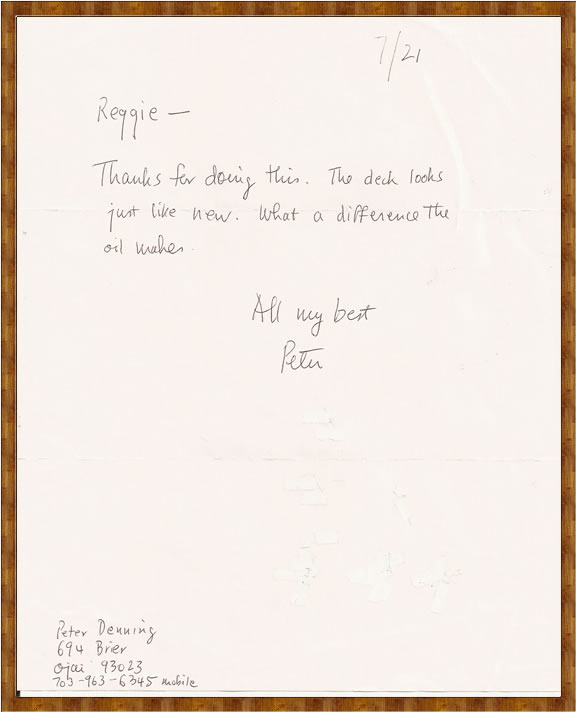 7/21
Reggie —
Thanks for doing this. The deck looks
just like new. What a difference the
oil makes.
All my best
Peter
Peter Denning
694 Brier
Ojai 93023
703-963-6345 mobile